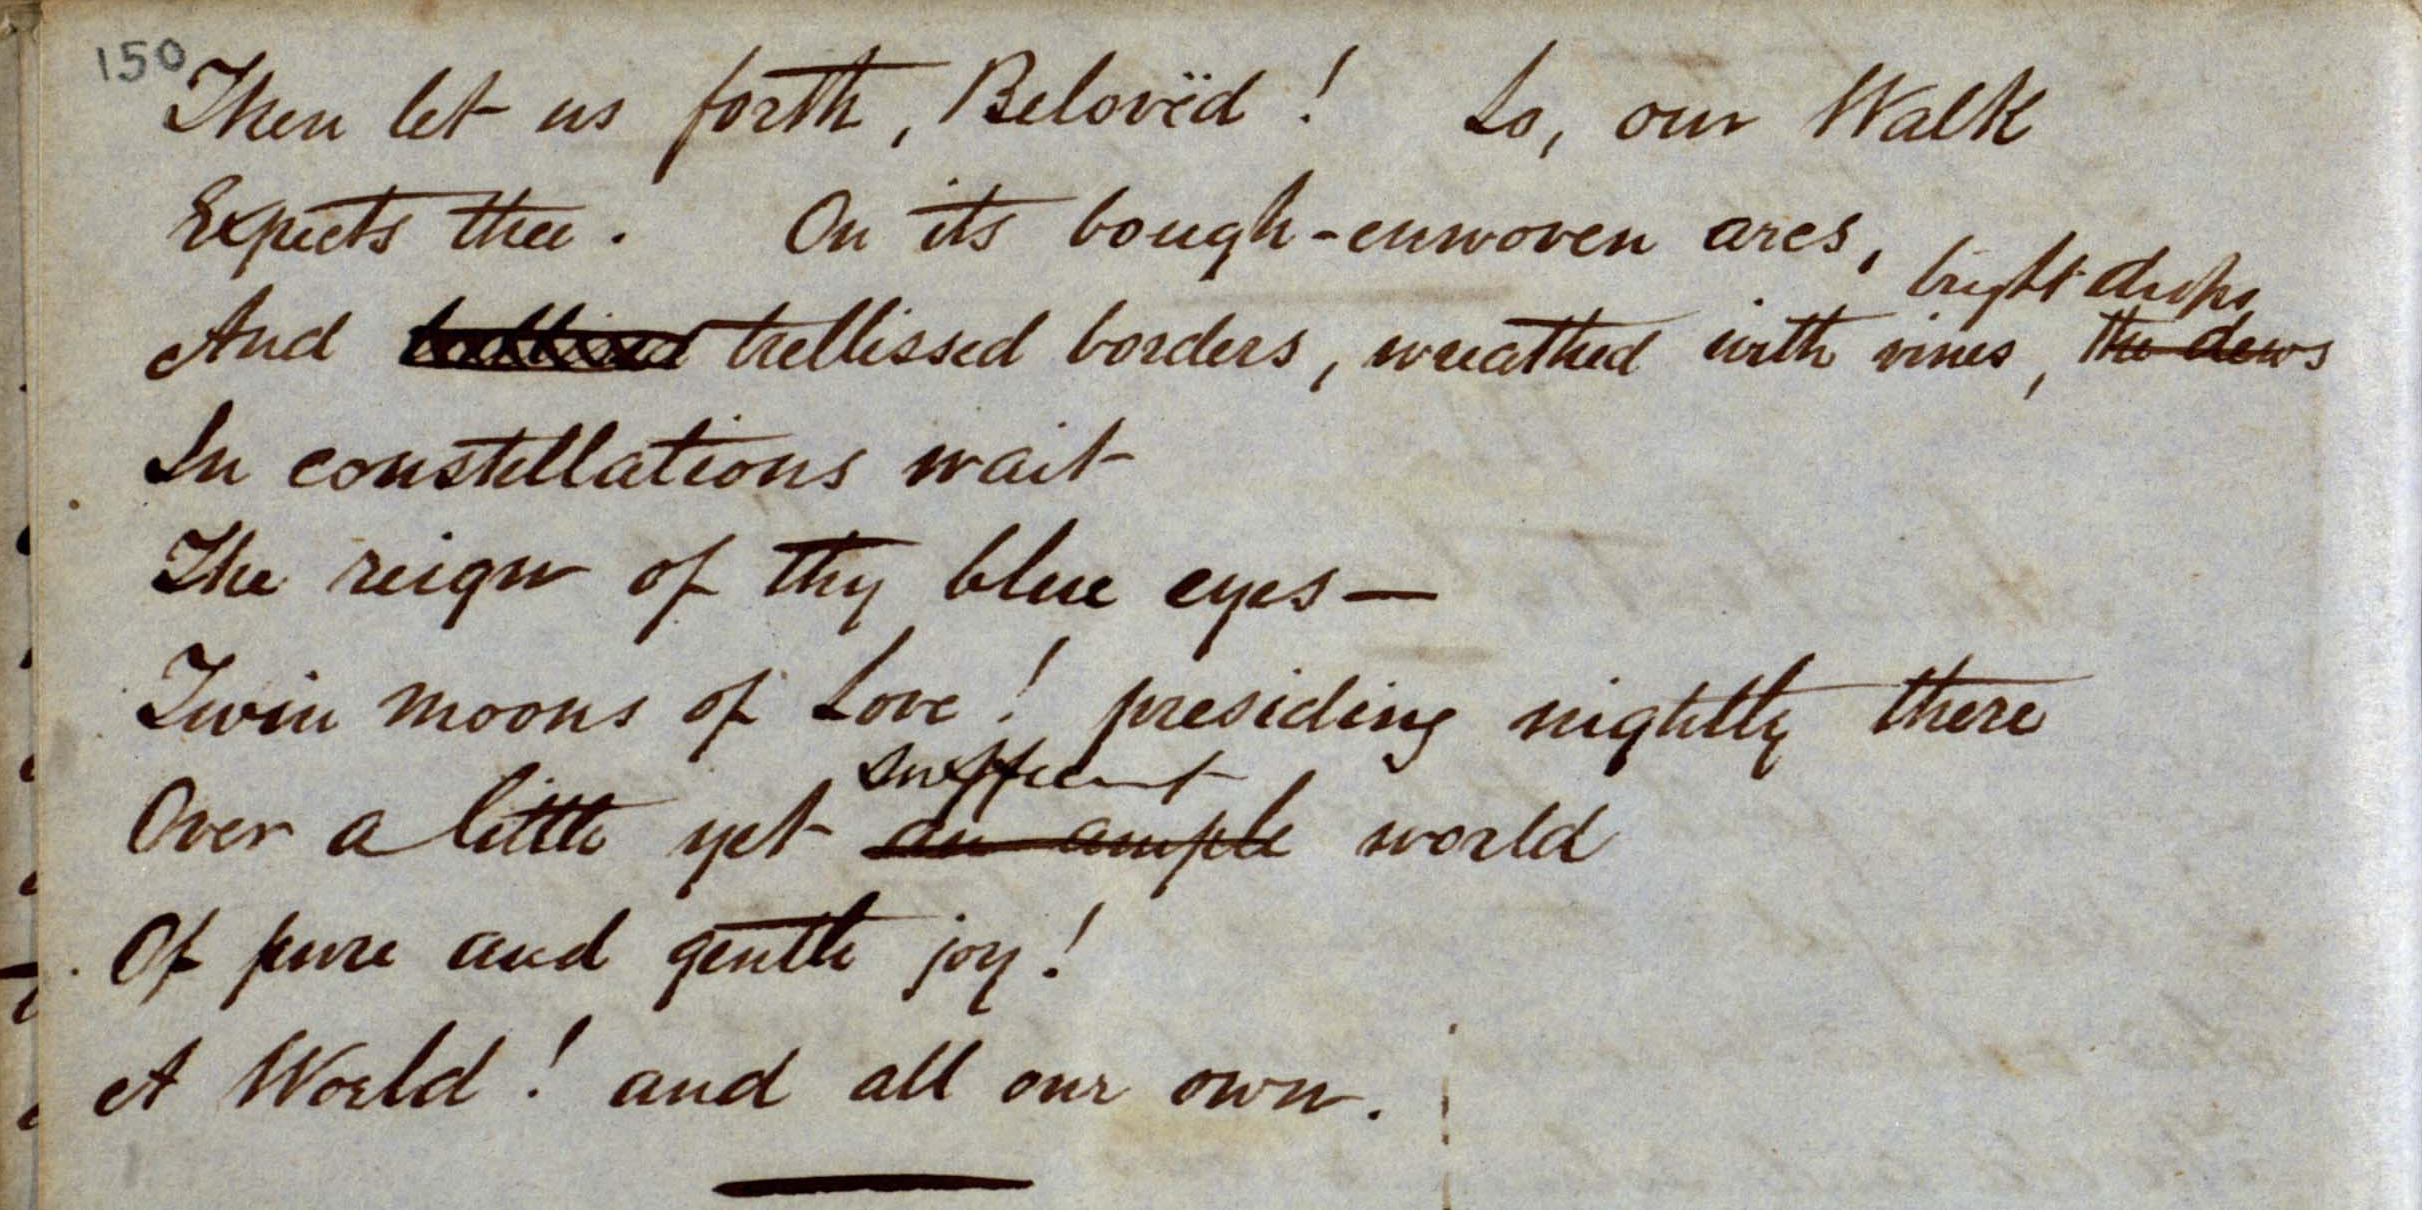 150
Then let us forth, Belovëd! Lo, our Walk
Expects thee. On its bough-enwoven arcs,
bright drops
And trellissed borders, wreathed with vines, the dews
In constellations wait
The reign of thy blue eyes—
Twin moons of Love! presiding nightly there
sufficient
Over a little yet an ample world
Of pure and gentle joy!
A World! and all our own.